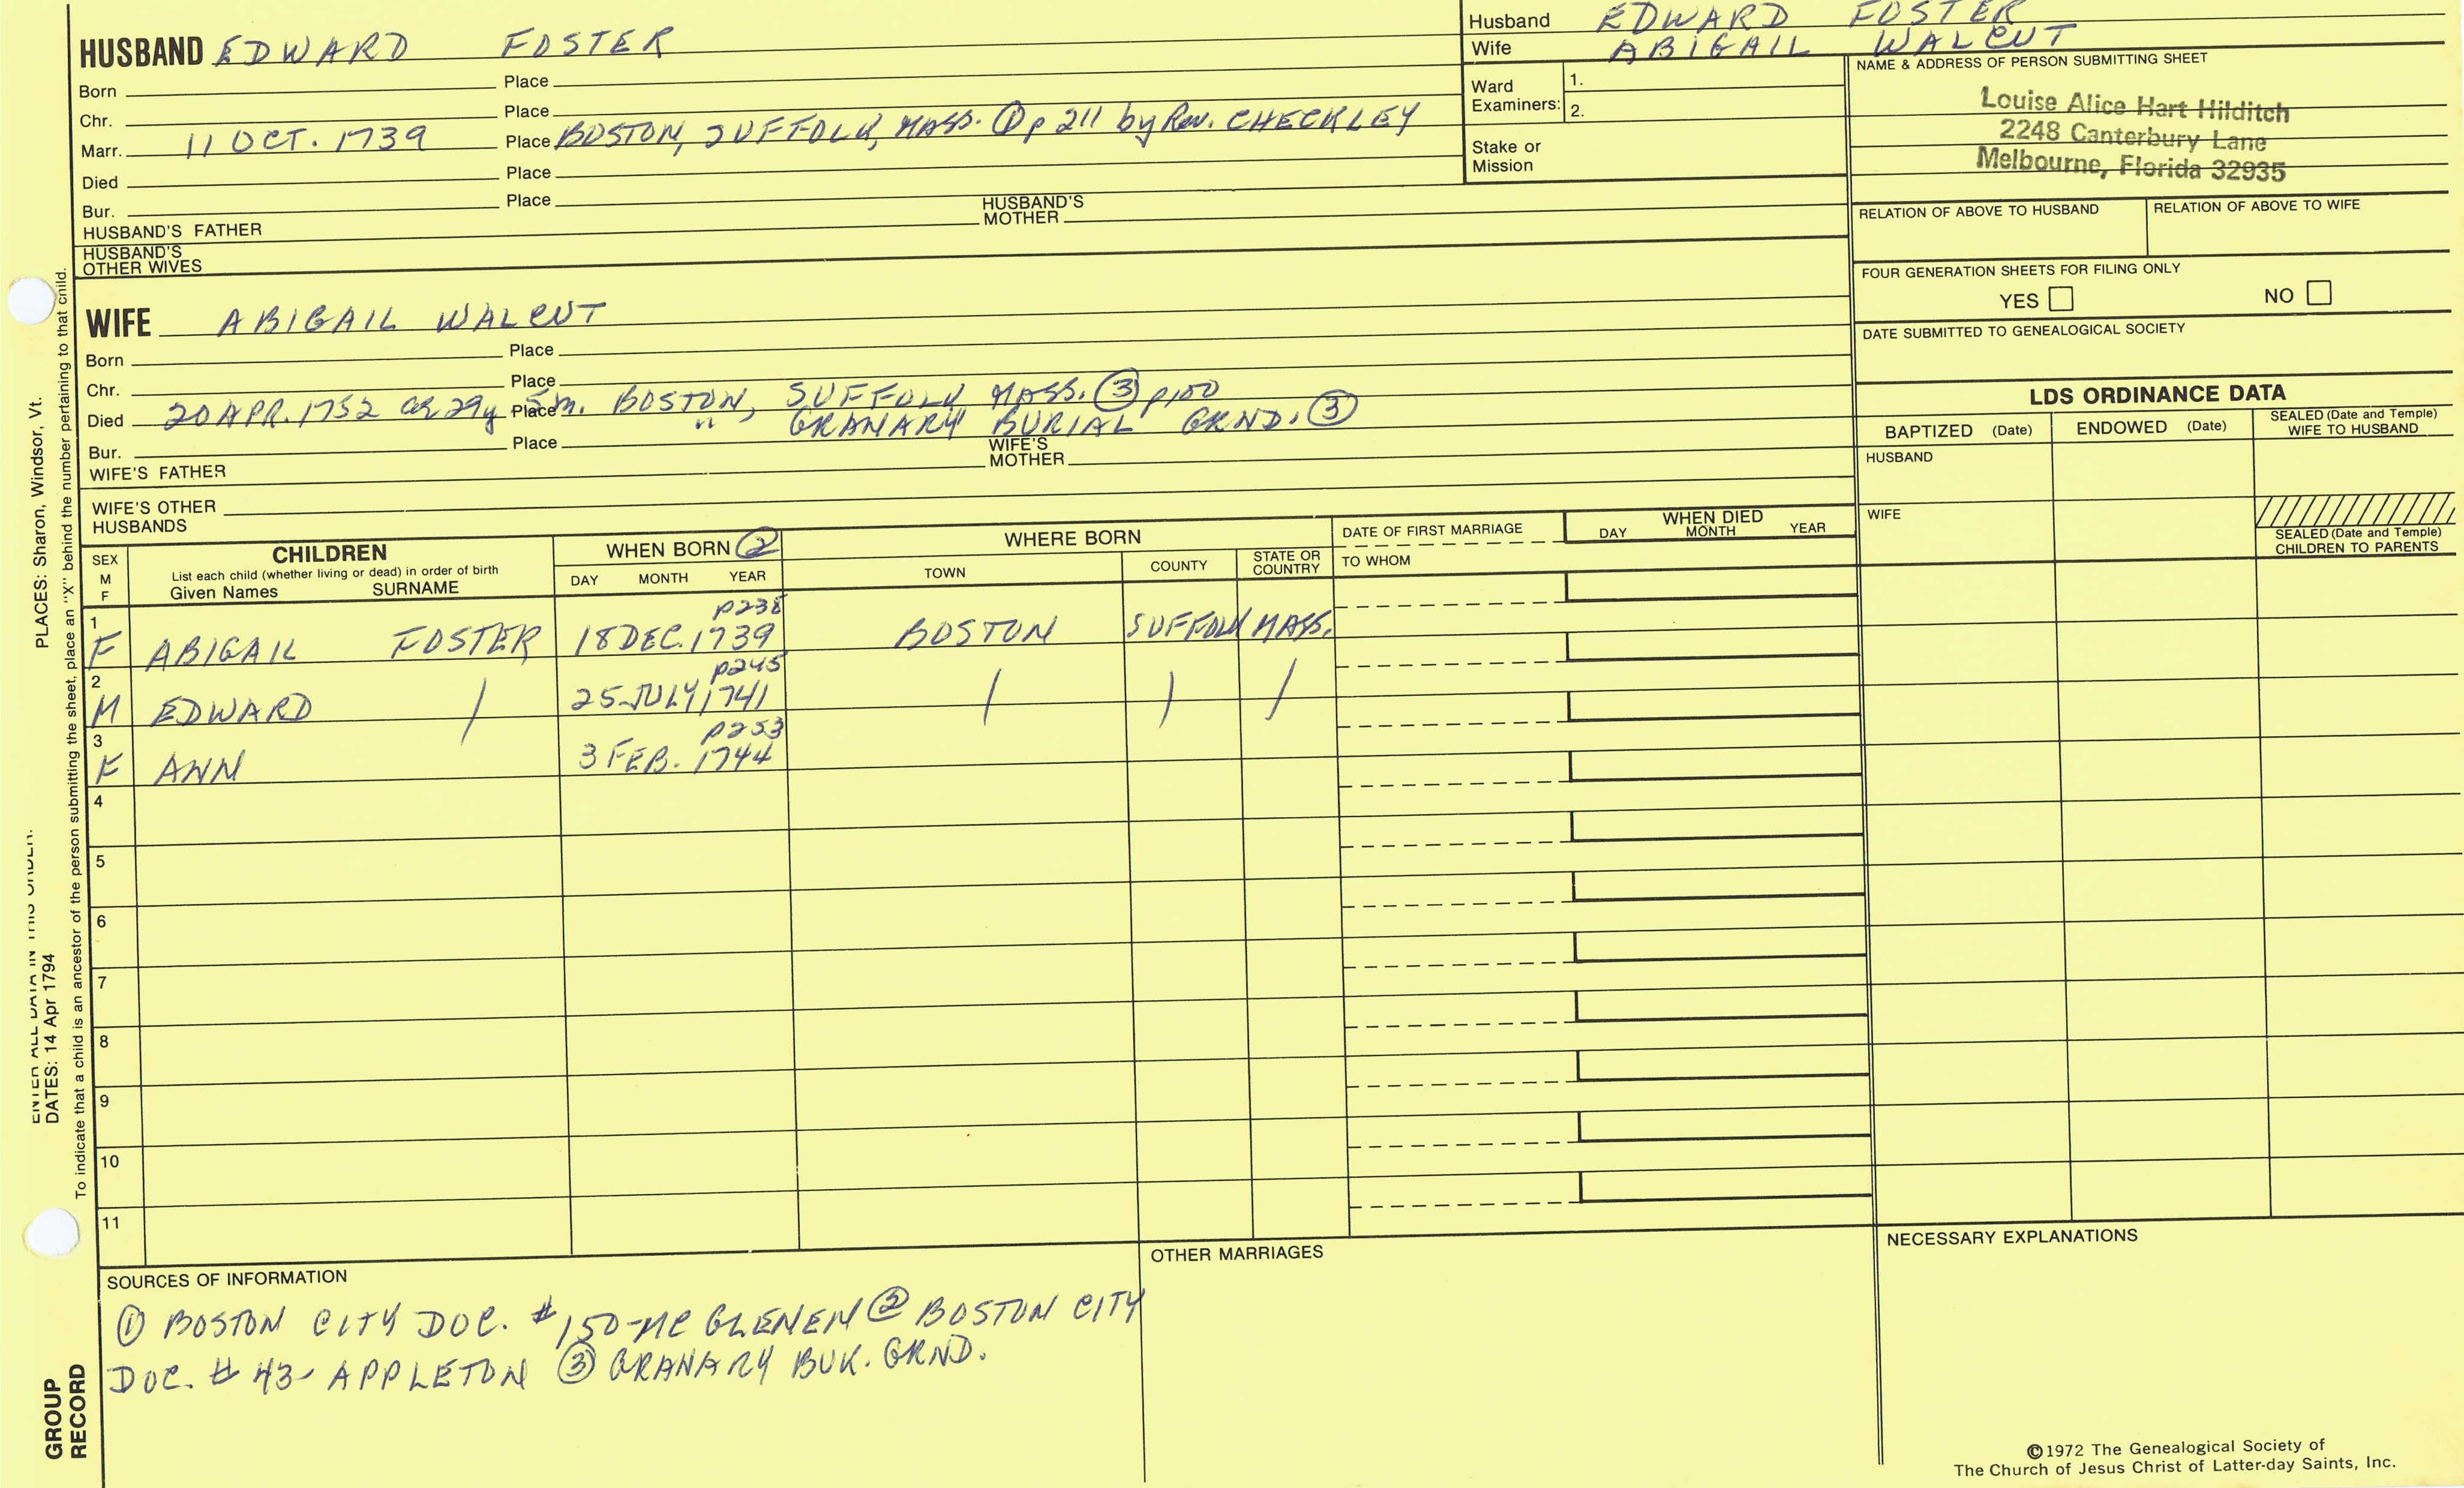 HUSBAND EDWARD FOSTER
Born Place
Chr. Place
Marr. 11 OCT. 1739 Place BOSTON, SUFFOLK, MASS. ① p 211 by Rev. CHECKLEY
Died Place
Bur. Place
HUSBAND'S FATHER HUSBAND'S MOTHER
HUSBAND'S
OTHER WIVES
WIFE ABIGAIL WALCUT
Born Place
Chr. Place
Died 20 APR. 1752 ae 29y 5m. Place BOSTON, SUFFOLK MASS. ③ p150
Bur. Place " GRANARY BURIAL GRND. ③
WIFE'S FATHER WIFE'S MOTHER
WIFE'S OTHER
HUSBANDS
Husband EDWARD FOSTER
Wife ABIGAIL WALCUT
Ward
Examiners: 1.
2.
Stake or
Mission
NAME & ADDRESS OF PERSON SUBMITTING SHEET
Louise Alice Hart Hilditch
2248 Canterbury Lane
Melbourne, Florida 32935
RELATION OF ABOVE TO HUSBAND RELATION OF ABOVE TO WIFE
FOUR GENERATION SHEETS FOR FILING ONLY
YES NO
DATE SUBMITTED TO GENEALOGICAL SOCIETY
LDS ORDINANCE DATA
BAPTIZED (Date) ENDOWED (Date) SEALED (Date and Temple)
WIFE TO HUSBAND
HUSBAND
WIFE
SEALED (Date and Temple)
CHILDREN TO PARENTS
SEX
M
F
CHILDREN
List each child (whether living or dead) in order of birth
Given Names SURNAME
WHEN BORN ②
DAY MONTH YEAR
WHERE BORN
TOWN COUNTY STATE OR
COUNTRY
DATE OF FIRST MARRIAGE
TO WHOM
WHEN DIED
DAY MONTH YEAR
p238
1 F ABIGAIL FOSTER 18 DEC. 1739 BOSTON SUFFOLK MASS.
p245
2 M EDWARD / 25 JULY 1741 / / /
p253
3 F ANN 3 FEB. 1744
4
5
6
7
8
9
10
11
SOURCES OF INFORMATION
① BOSTON CITY DOC. # 150-MC GLENEN ② BOSTON CITY
DOC. # 43- APPLETON ③ GRANARY BUR. GRND.
OTHER MARRIAGES
NECESSARY EXPLANATIONS
©1972 The Genealogical Society of
The Church of Jesus Christ of Latter-day Saints, Inc.
ENTER ALL DATA IN THIS ORDER:
DATES: 14 Apr 1794 PLACES: Sharon, Windsor, Vt.
To indicate that a child is an ancestor of the person submitting the sheet, place an "X" behind the number pertaining to that child.
GROUP
RECORD